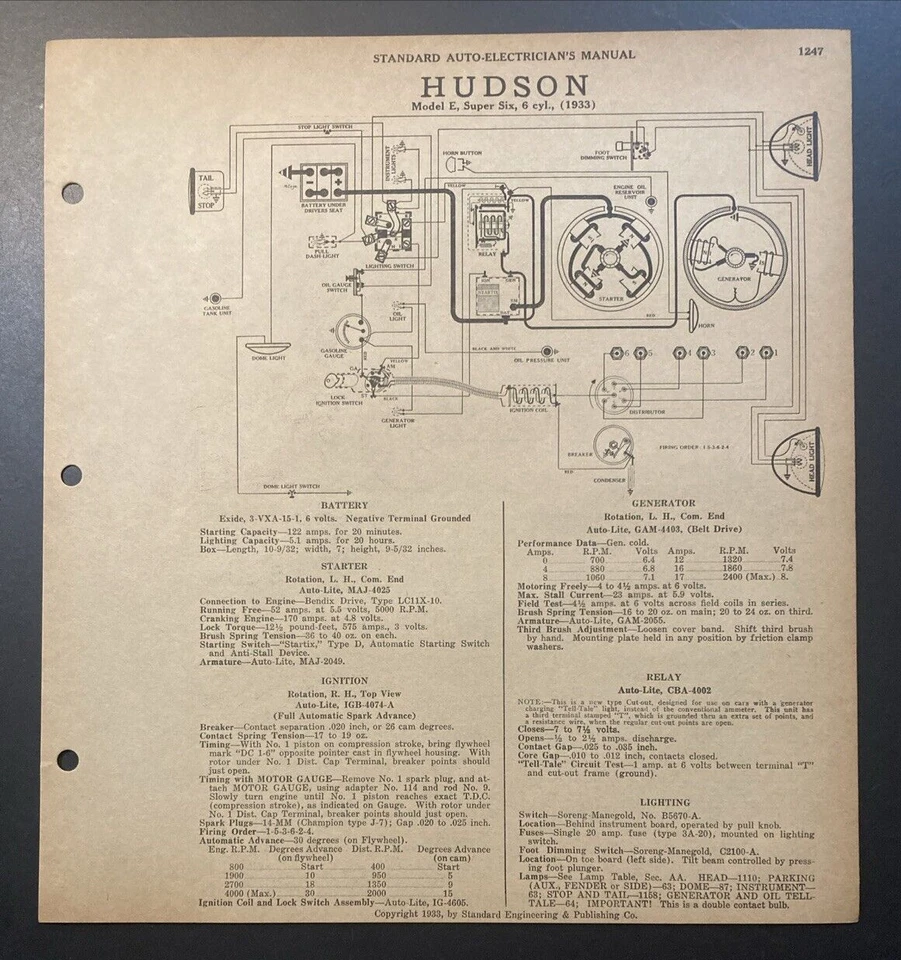 STANDARD AUTO-ELECTRICIAN'S MANUAL
1247
HUDSON
Model E, Super Six, 6 cyl., (1933)
STOP LIGHT SWITCH
TAIL
STOP
BATTERY UNDER
DRIVERS SEAT
INSTRUMENT
LIGHTS
HORN BUTTON
FOOT
DIMMING SWITCH
HEAD LIGHT
YELLOW
YELLOW
ENGINE OIL
RESERVOIR
UNIT
PULL
DASH LIGHT
LIGHTING SWITCH
RELAY
STARTER
GENERATOR
OIL GAUGE
SWITCH
IGN
GASOLINE
TANK UNIT
OIL
LIGHT
RED
HORN
GASOLINE
GAUGE
DOME LIGHT
RED
BLACK AND WHITE
OIL PRESSURE UNIT
6 5 4 3 2 1
YELLOW
GA
AM
ST
BLACK
LOCK
IGNITION SWITCH
IGNITION COIL
DISTRIBUTOR
GENERATOR
LIGHT
BREAKER
FIRING ORDER 1-5-3-6-2-4
RED
CONDENSER
HEAD LIGHT
DOME LIGHT SWITCH
BATTERY
Exide, 3-VXA-15-1, 6 volts. Negative Terminal Grounded
Starting Capacity—122 amps. for 20 minutes.
Lighting Capacity—5.1 amps. for 20 hours.
Box—Length, 10-9/32; width, 7; height, 9-5/32 inches.
STARTER
Rotation, L. H., Com. End
Auto-Lite, MAJ-4025
Connection to Engine—Bendix Drive, Type LC11X-10.
Running Free—52 amps. at 5.5 volts, 5000 R.P.M.
Cranking Engine—170 amps. at 4.8 volts.
Lock Torque—12½ pound-feet, 575 amps., 3 volts.
Brush Spring Tension—36 to 40 oz. on each.
Starting Switch—"Startix," Type D, Automatic Starting Switch
and Anti-Stall Device.
Armature—Auto-Lite, MAJ-2049.
IGNITION
Rotation, R. H., Top View
Auto-Lite, IGB-4074-A
(Full Automatic Spark Advance)
Breaker—Contact separation .020 inch, or 26 cam degrees.
Contact Spring Tension—17 to 19 oz.
Timing—With No. 1 piston on compression stroke, bring flywheel
mark "DC 1-6" opposite pointer cast in flywheel housing. With
rotor under No. 1 Dist. Cap Terminal, breaker points should
just open.
Timing with MOTOR GAUGE—Remove No. 1 spark plug, and at-
tach MOTOR GAUGE, using adapter No. 114 and rod No. 9.
Slowly turn engine until No. 1 piston reaches exact T.D.C.
(compression stroke), as indicated on Gauge. With rotor under
No. 1 Dist. Cap Terminal, breaker points should just open.
Spark Plugs—14-MM (Champion type J-7); Gap .020 to .025 inch.
Firing Order—1-5-3-6-2-4.
Automatic Advance—30 degrees (on Flywheel).
Eng. R.P.M. Degrees Advance Dist. R.P.M. Degrees Advance
(on flywheel) (on cam)
800 Start 400 Start
1900 10 950 5
2700 18 1350 9
4000 (Max.) 30 2000 15
Ignition Coil and Lock Switch Assembly—Auto-Lite, IG-4605.
GENERATOR
Rotation, L. H., Com. End
Auto-Lite, GAM-4403, (Belt Drive)
Performance Data—Gen. cold.
Amps. R.P.M. Volts Amps. R.P.M. Volts
0 700 6.4 12 1320 7.4
4 880 6.8 16 1860 7.8
8 1060 7.1 17 2400 (Max.) 8.
Motoring Freely—4 to 4½ amps. at 6 volts.
Max. Stall Current—23 amps. at 5.9 volts.
Field Test—4½ amps. at 6 volts across field coils in series.
Brush Spring Tension—16 to 20 oz. on main; 20 to 24 oz. on third.
Armature—Auto-Lite, GAM-2055.
Third Brush Adjustment—Loosen cover band. Shift third brush
by hand. Mounting plate held in any position by friction clamp
washers.
RELAY
Auto-Lite, CBA-4002
NOTE:—This is a new type Cut-out, designed for use on cars with a generator
charging "Tell-Tale" light, instead of the conventional ammeter. This unit has
a third terminal stamped "T", which is grounded thru an extra set of points, and
a resistance wire, when the regular cut-out points are open.
Closes—7 to 7½ volts.
Opens—½ to 2½ amps. discharge.
Contact Gap—.025 to .035 inch.
Core Gap—.010 to .012 inch, contacts closed.
"Tell-Tale" Circuit Test—1 amp. at 6 volts between terminal "T"
and cut-out frame (ground).
LIGHTING
Switch—Soreng-Manegold, No. B5670-A.
Location—Behind instrument board, operated by pull knob.
Fuses—Single 20 amp. fuse (type 3A-20), mounted on lighting
switch.
Foot Dimming Switch—Soreng-Manegold, C2100-A.
Location—On toe board (left side). Tilt beam controlled by press-
ing foot plunger.
Lamps—See Lamp Table, Sec. AA. HEAD—1110; PARKING
(AUX., FENDER or SIDE)—63; DOME—87; INSTRUMENT—
63; STOP AND TAIL—1158; GENERATOR AND OIL TELL-
TALE—64; IMPORTANT! This is a double contact bulb.
Copyright 1933, by Standard Engineering & Publishing Co.